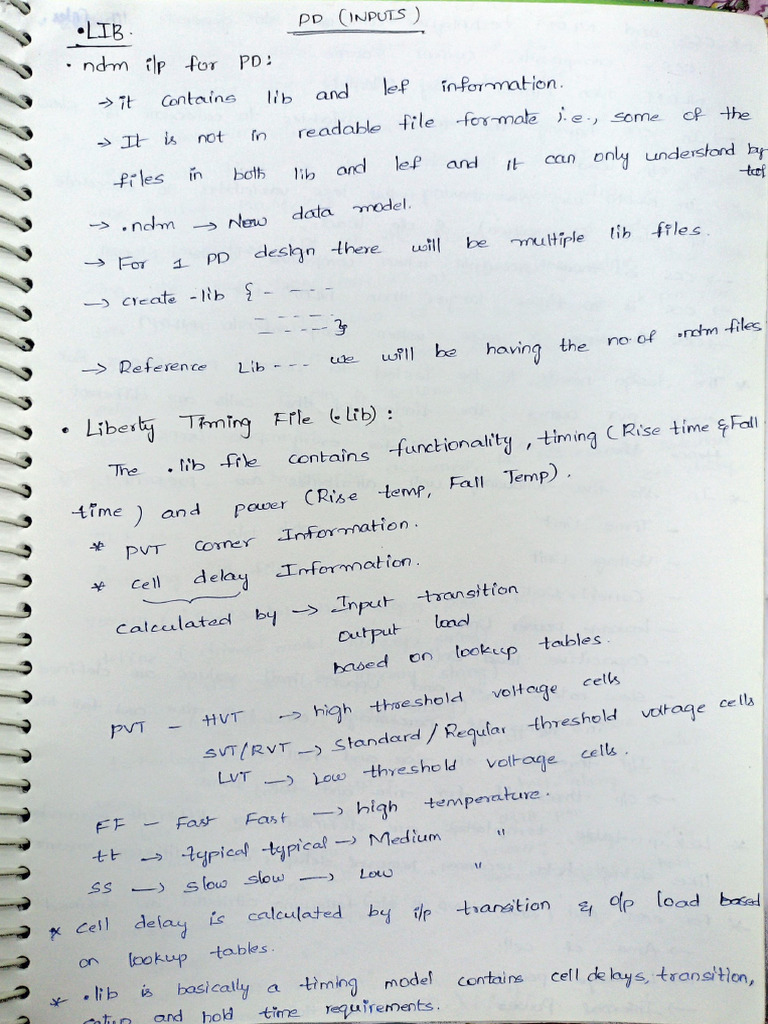 PD (INPUTS)
• LIB.
• ndm i/p for PD:
→ it contains lib and lef information.
→ It is not in readable file formate i.e., some of the
files in both lib and lef and it can only understand by
tool
→ .ndm → New data model.
→ For 1 PD design there will be multiple lib files.
→ create -lib { - - - - -
- - - - - }
→ Reference Lib - - - we will be having the no. of .ndm files
• Liberty Timing File (.lib) :
The .lib file contains functionality, timing (Rise time & Fall
time) and power (Rise temp, Fall Temp).
* PVT corner Information.
* cell delay Information.
calculated by → Input transition
output load
based on lookup tables.
PVT - HVT → high threshold voltage cells
SVT/RVT → Standard / Regular threshold voltage cells
LVT → Low threshold voltage cells.
FF - Fast Fast → high temperature.
tt → typical typical → Medium "
SS → slow slow → Low "
* cell delay is calculated by i/p transition & o/p load based
on lookup tables.
* .lib is basically a timing model contains cell delays, transition,
setup and hold time requirements.